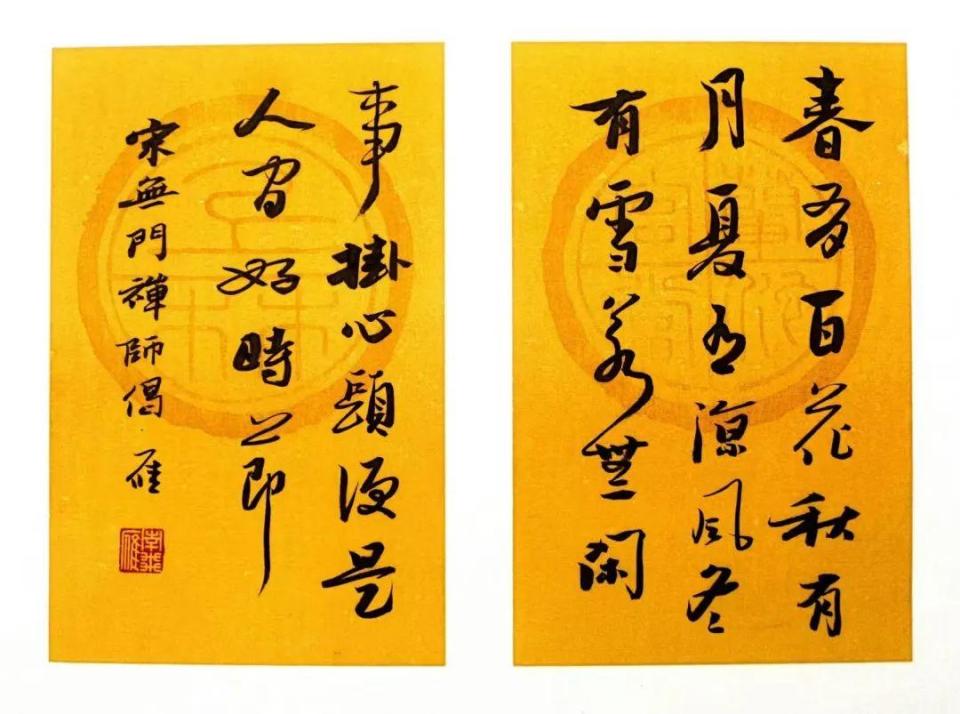 春有百花秋有
月夏有涼風冬
有雪若無閑
事掛心頭便是
人間好時節
宋無門禪師偈 雁